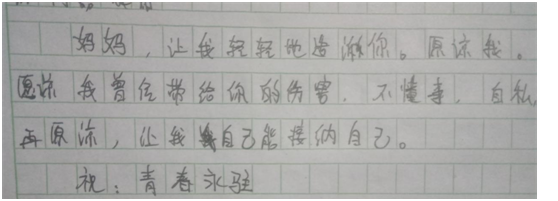 妈妈，让我轻轻地告诉你。原谅我。
原谅我曾经带给你的伤害，不懂事，自私
再原谅，让我自己能接纳自己。
祝：青春永驻